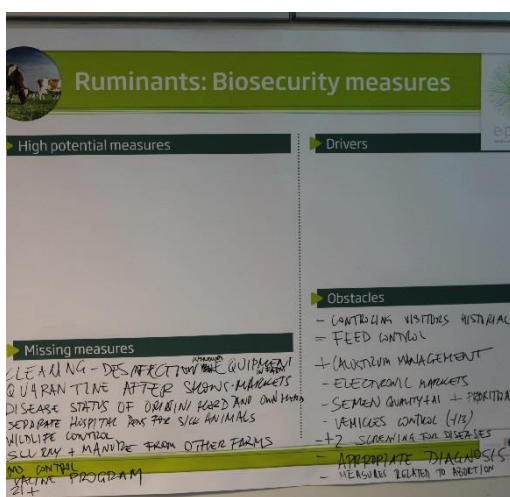 Ruminants: Biosecurity measures
High potential measures
Drivers
Missing measures
CLEANING - DESINFECTION EQUIPMENT
QUARANTINE AFTER SHOWS - MARKETS
DISEASE STATUS OF ORIGINI HERD AND OWN HERD
SEPARATE HOSPITAL PENS FOR SICK ANIMALS
WILDLIFE CONTROL
SLURRY + MANURE FROM OTHER FARMS
CONTROL
PROGRAM
Obstacles
- CONTROLING VISITORS HISTORIAL
= FEED CONTROL
MANAGEMENT
- ELECTRONIC MARKETS
- SEMEN QUALITY +AI +
- VEHICLES CONTROL (+/2)
-+2 SCREENING FOR DISEASES
- APPROPRIATE DIAGNOSIS
- MEASURES RELATED TO ABORTION